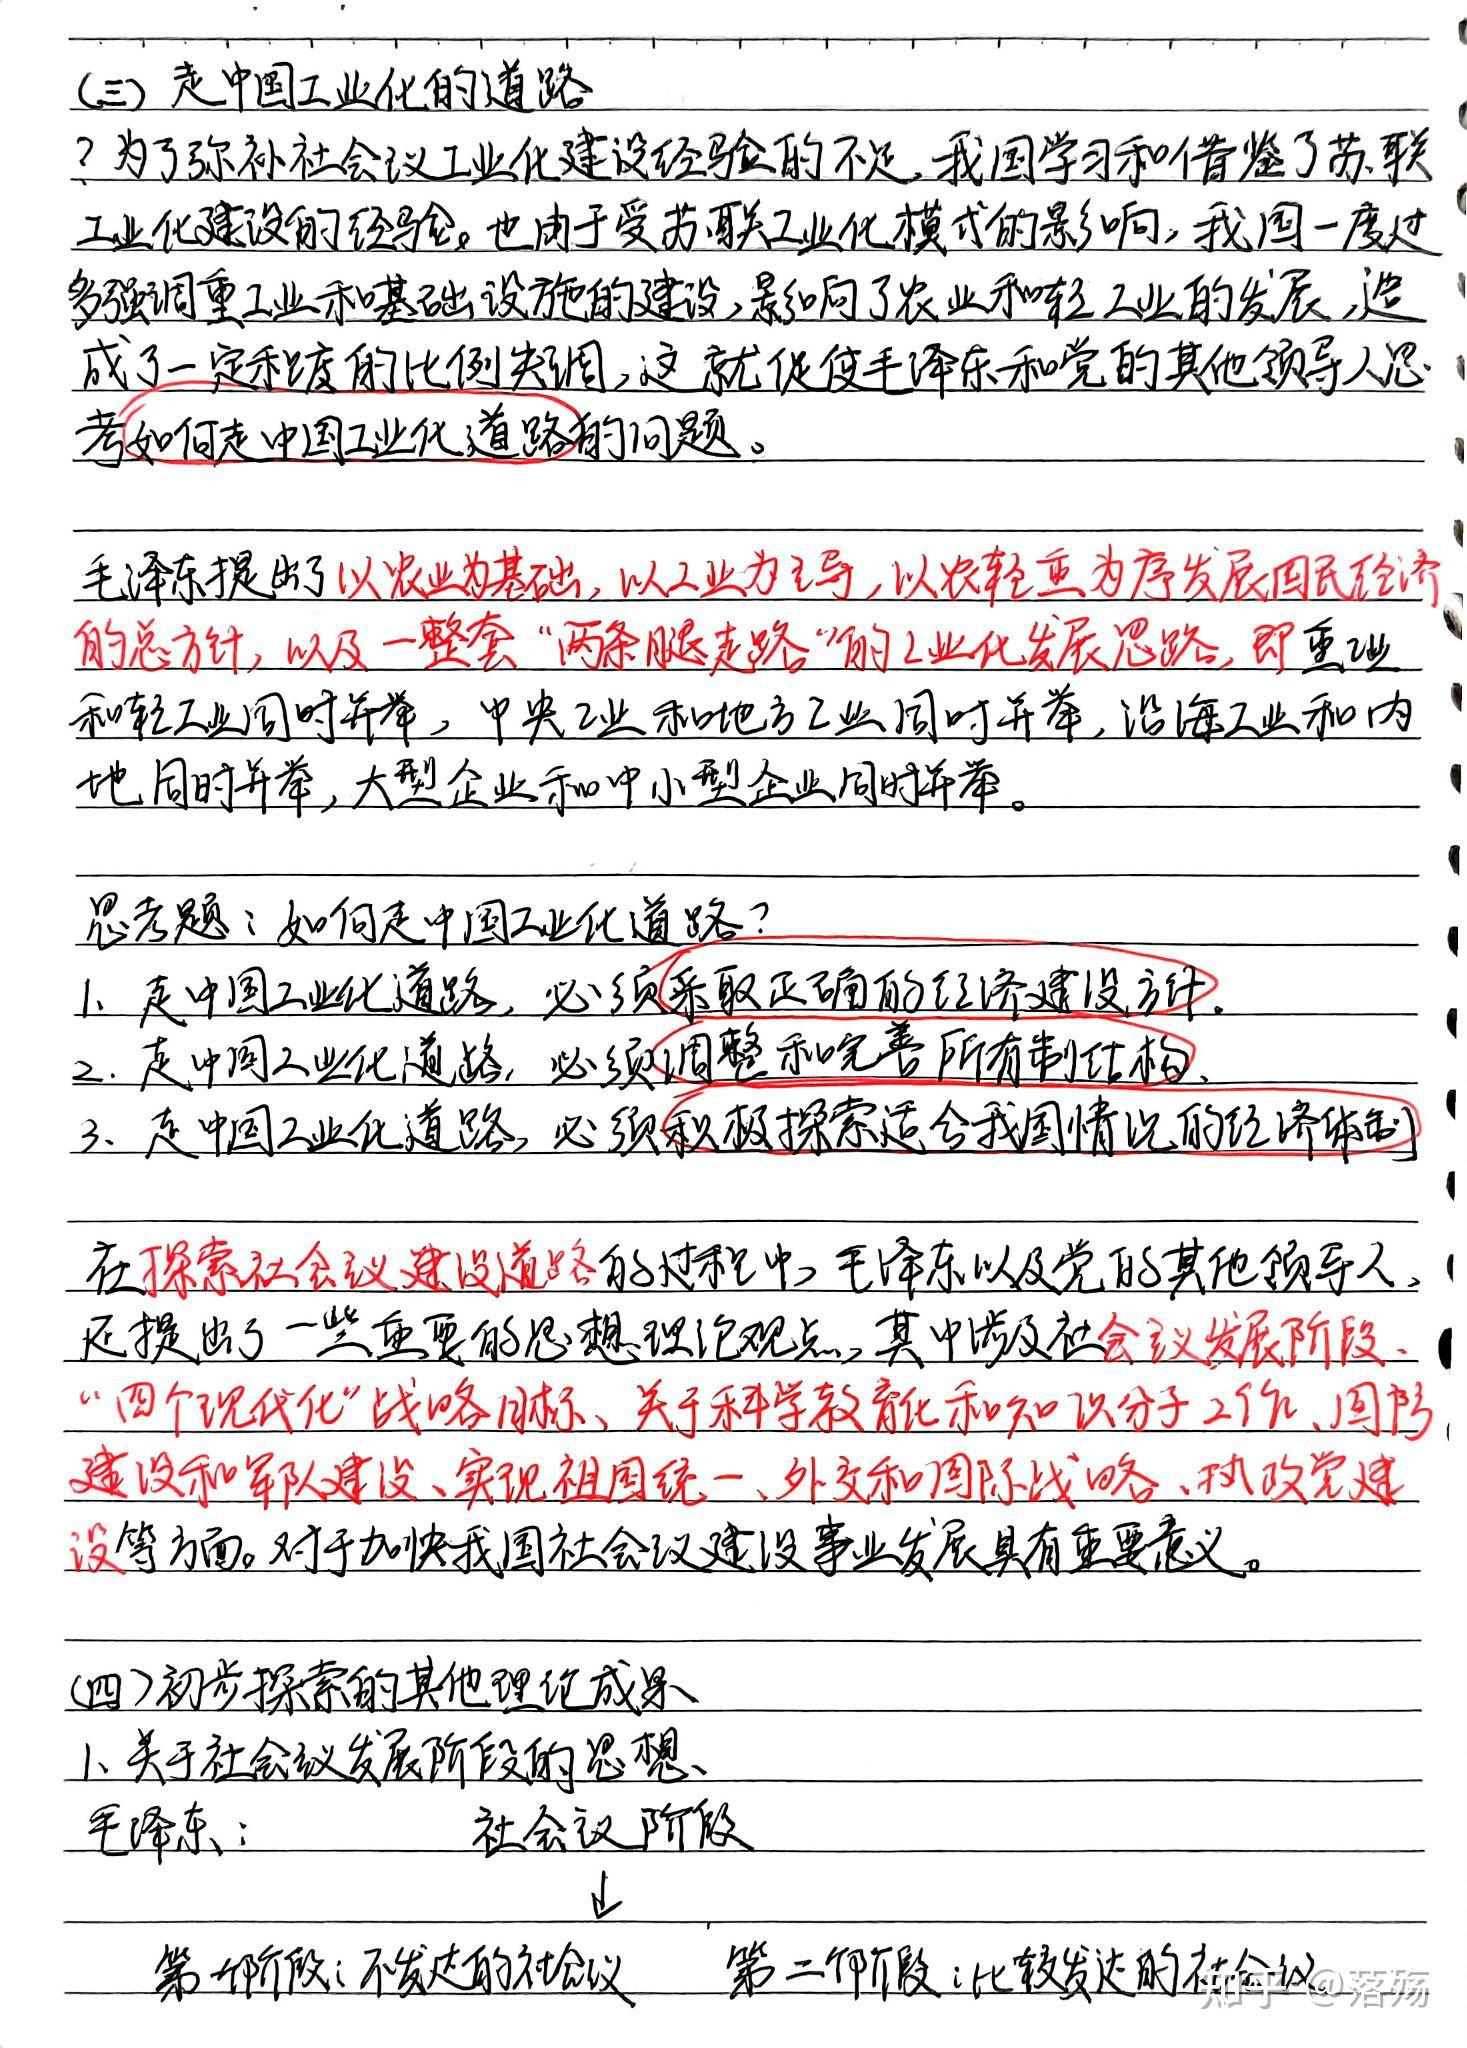 (三)走中国工业化的道路
?为了弥补社会议工业化建设经验的不足,我国学习和借鉴了苏联
工业化建设的经验。也由于受苏联工业化模式的影响,我国一度过
多强调重工业和基础设施的建设,影响了农业和轻工业的发展,造
成了一定程度的比例失调,这就促使毛泽东和党的其他领导人思
考如何走中国工业化道路的问题。
毛泽东提出了以农业为基础,以工业为主导,以农轻重为序发展国民经济
的总方针,以及一整套“两条腿走路”的工业化发展思路,即重工业
和轻工业同时并举,中央工业和地方工业同时并举,沿海工业和内
地同时并举,大型企业和中小型企业同时并举。
思考题:如何走中国工业化道路?
1、走中国工业化道路,必须采取正确的经济建设方针.
2.走中国工业化道路,必须调整和完善所有制结构、
3、走中国工业化道路,必须积极探索适合我国情况的经济体制
在探索社会议建设道路的过程中,毛泽东以及党的其他领导人、
还提出了一些重要的思想理论观点,其中涉及社会议发展阶段、
“四个现代化”战略目标、关于科学教育化和知识分子工作、国防
建设和军队建设、实现祖国统一、外交和国际战略、执政党建
设等方面。对于加快我国社会议建设事业发展具有重要意义。
(四)初步探索的其他理论成果
1、关于社会议发展阶段的思想、
毛泽东: 社会议阶段
↓
第一个阶段:不发达的社会议 第二个阶段:比较发达的社会议
知乎 @落殇